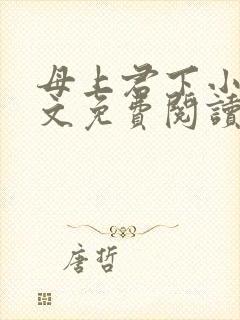 母上君下小
文免費閱讀
唐哲